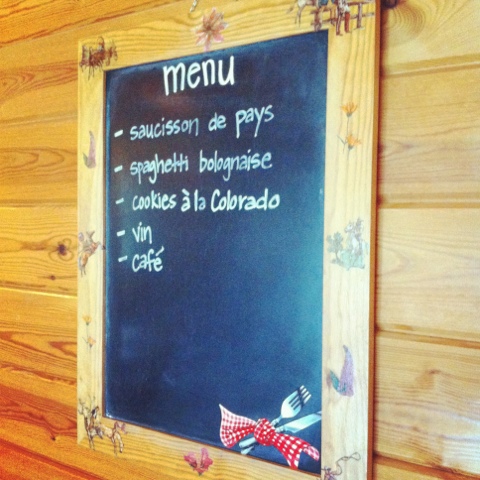 menu
- saucisson de pays
- spaghetti bolognaise
- cookies à la Colorado
- vin
- café